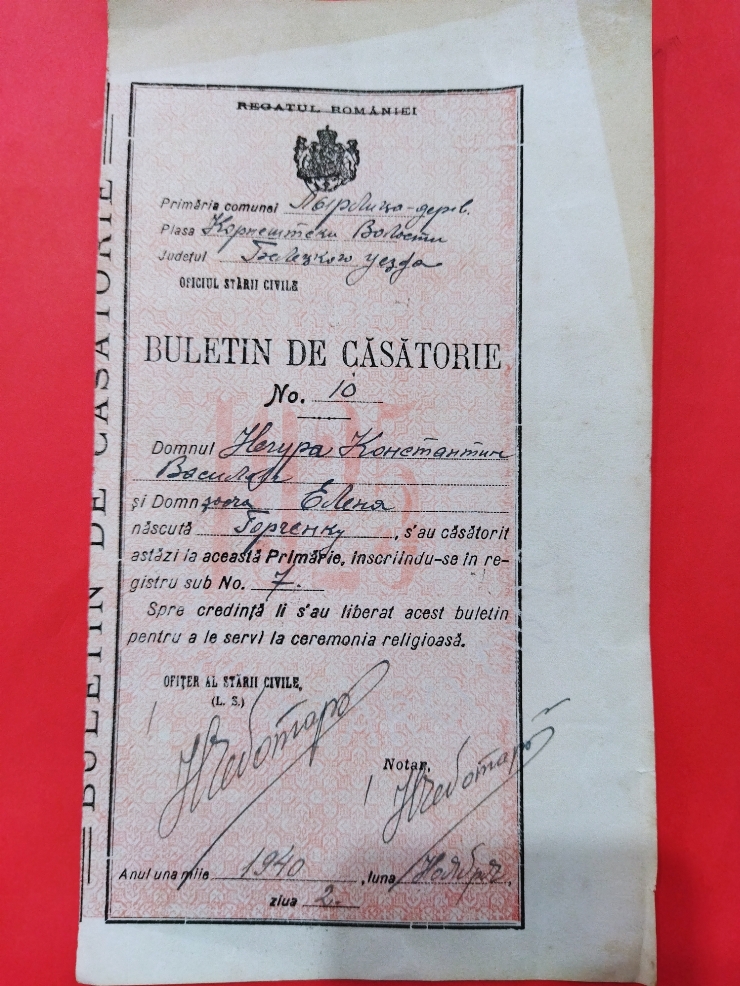 BULETIN DE CĂSĂTORIE
REGATUL ROMÂNIEI
Primăria comunei Пырлица-дерев.
Plasa Корнештски Волости
Județul Бэлецкого уезда
OFICIUL STĂRII CIVILE
BULETIN DE CĂSĂTORIE
No. 10
Domnul Негура Константин
și Domn Елена
născută Горченку, s'au căsătorit
astăzi la această Primărie, inscriindu-se in re-
gistru sub No. 7.
Spre credință li s'au liberat acest buletin
pentru a le servi la ceremonia religioasă.
OFIȚER AL STĂRII CIVILE,
(L. S.)
Notar,
Anul una mie 1940, luna Ноября,
ziua 2.